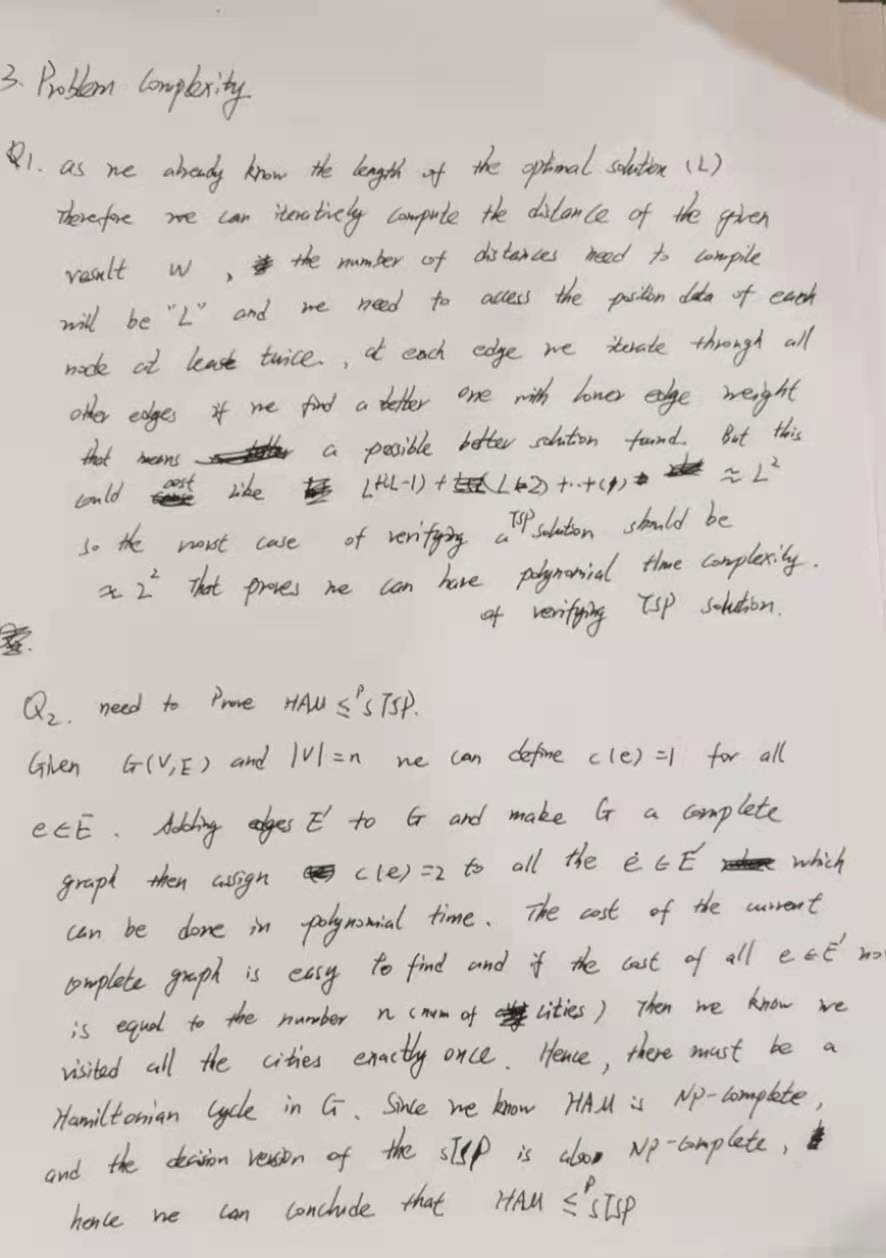 3. Problem Complexity
Q1. as we already know the length of the optimal solution (L)
Therefore we can iteratively compute the distance of the given
result W , the number of distances need to compile
will be "L" and we need to access the position data of each
node at least twice. , at each edge we iterate through all
other edges if we find a better one with lower edge weight
that means a possible better solution found. But this
could cost like L+(L-1) + (L-2) +..+(1) ≈ L²
so the worst case of verifying a TSP solution should be
≈ L² That proves we can have polynomial time complexity.
of verifying TSP solution.
Q2. need to Prove HAM ≤ᵖ sTSP.
Given G(V,E) and |V|=n we can define c(e)=1 for all
e∈E . Adding edges E' to G and make G a complete
graph then assign c(e)=2 to all the e ∈ E' which
can be done in polynomial time. The cost of the current
complete graph is easy to find and if the cost of all e∈E'
is equal to the number n (num of cities) Then we know we
visited all the cities exactly once. Hence, there must be a
Hamiltonian Cycle in G. Since we know HAM is NP-complete,
and the decision version of the sTSP is also NP-complete,
hence we can conclude that HAM ≤ᵖ sTSP